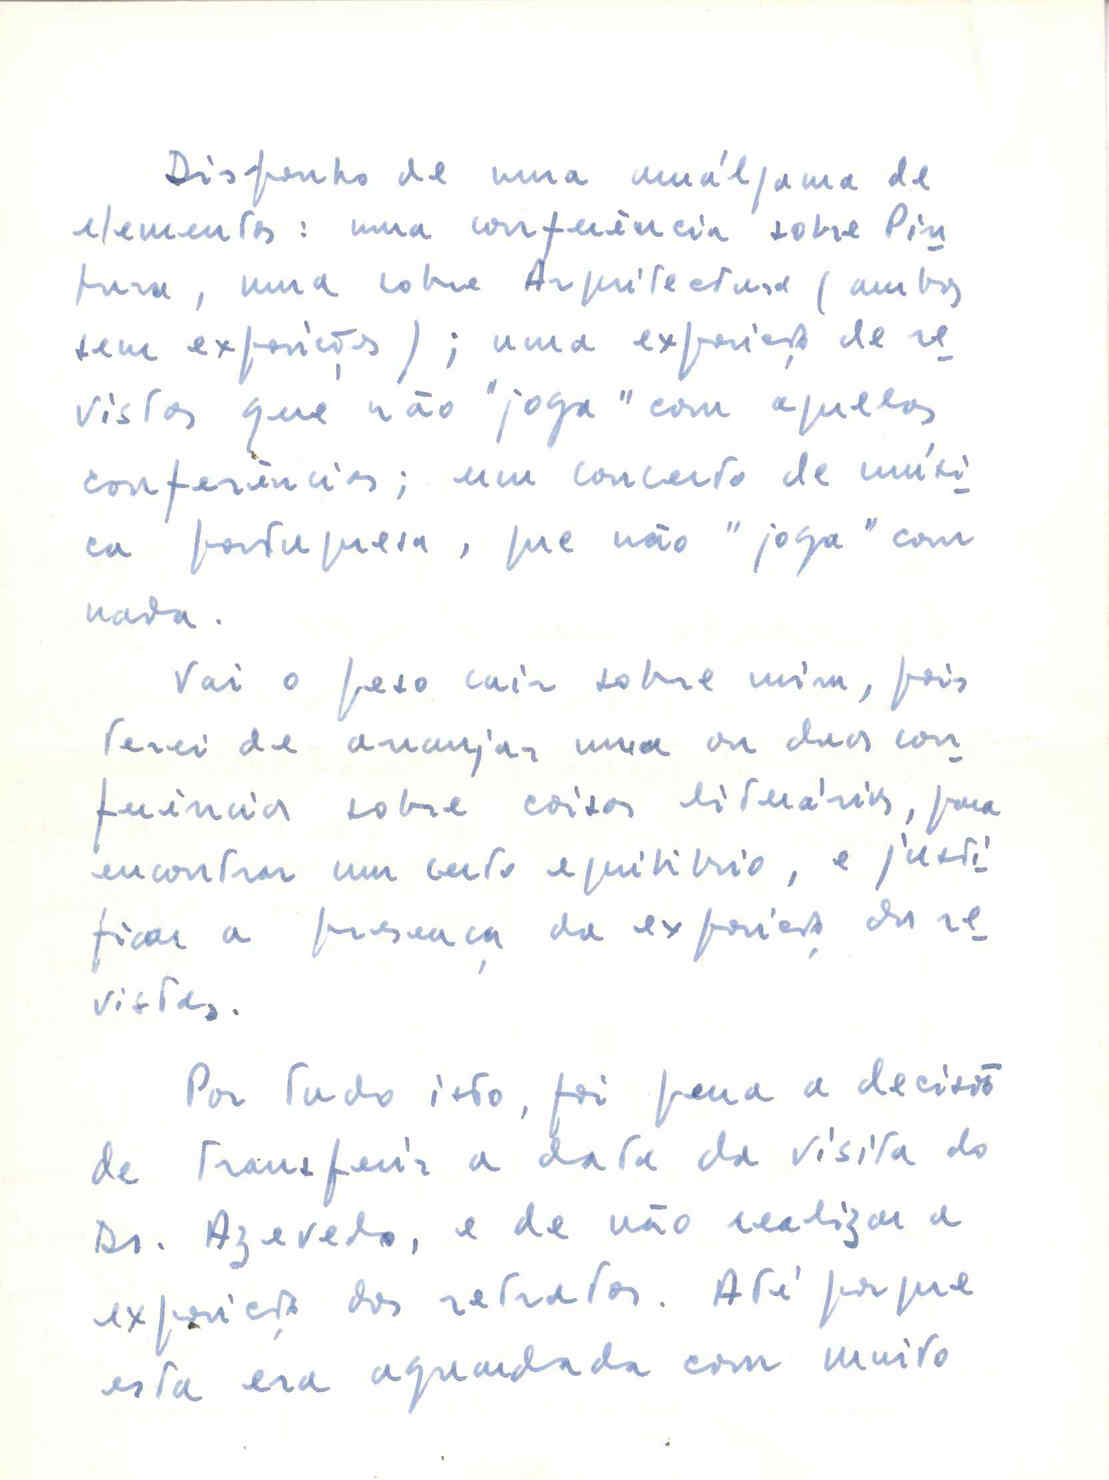 Disponho de uma amálgama de
elementos: uma conferência sobre Pin
tura, uma sobre Arquitectura (ambas
sem exposições); uma exposição de re
vistas que não "joga" com aquelas
conferências; um concerto de músi
ca portuguesa, que não "joga" com
nada.
Vai o peso cair sobre mim, pois
terei de arranjar uma ou duas con
ferências sobre coisas literárias, para
encontrar um certo equilibrio, e justi
ficar a presença da exposição das re
vistas.
Por tudo isto, foi pena a decisão
de transferir a data da visita do
Dr. Azevedo, e de não realizar a
exposição dos retratos. Até porque
esta era aguardada com muito